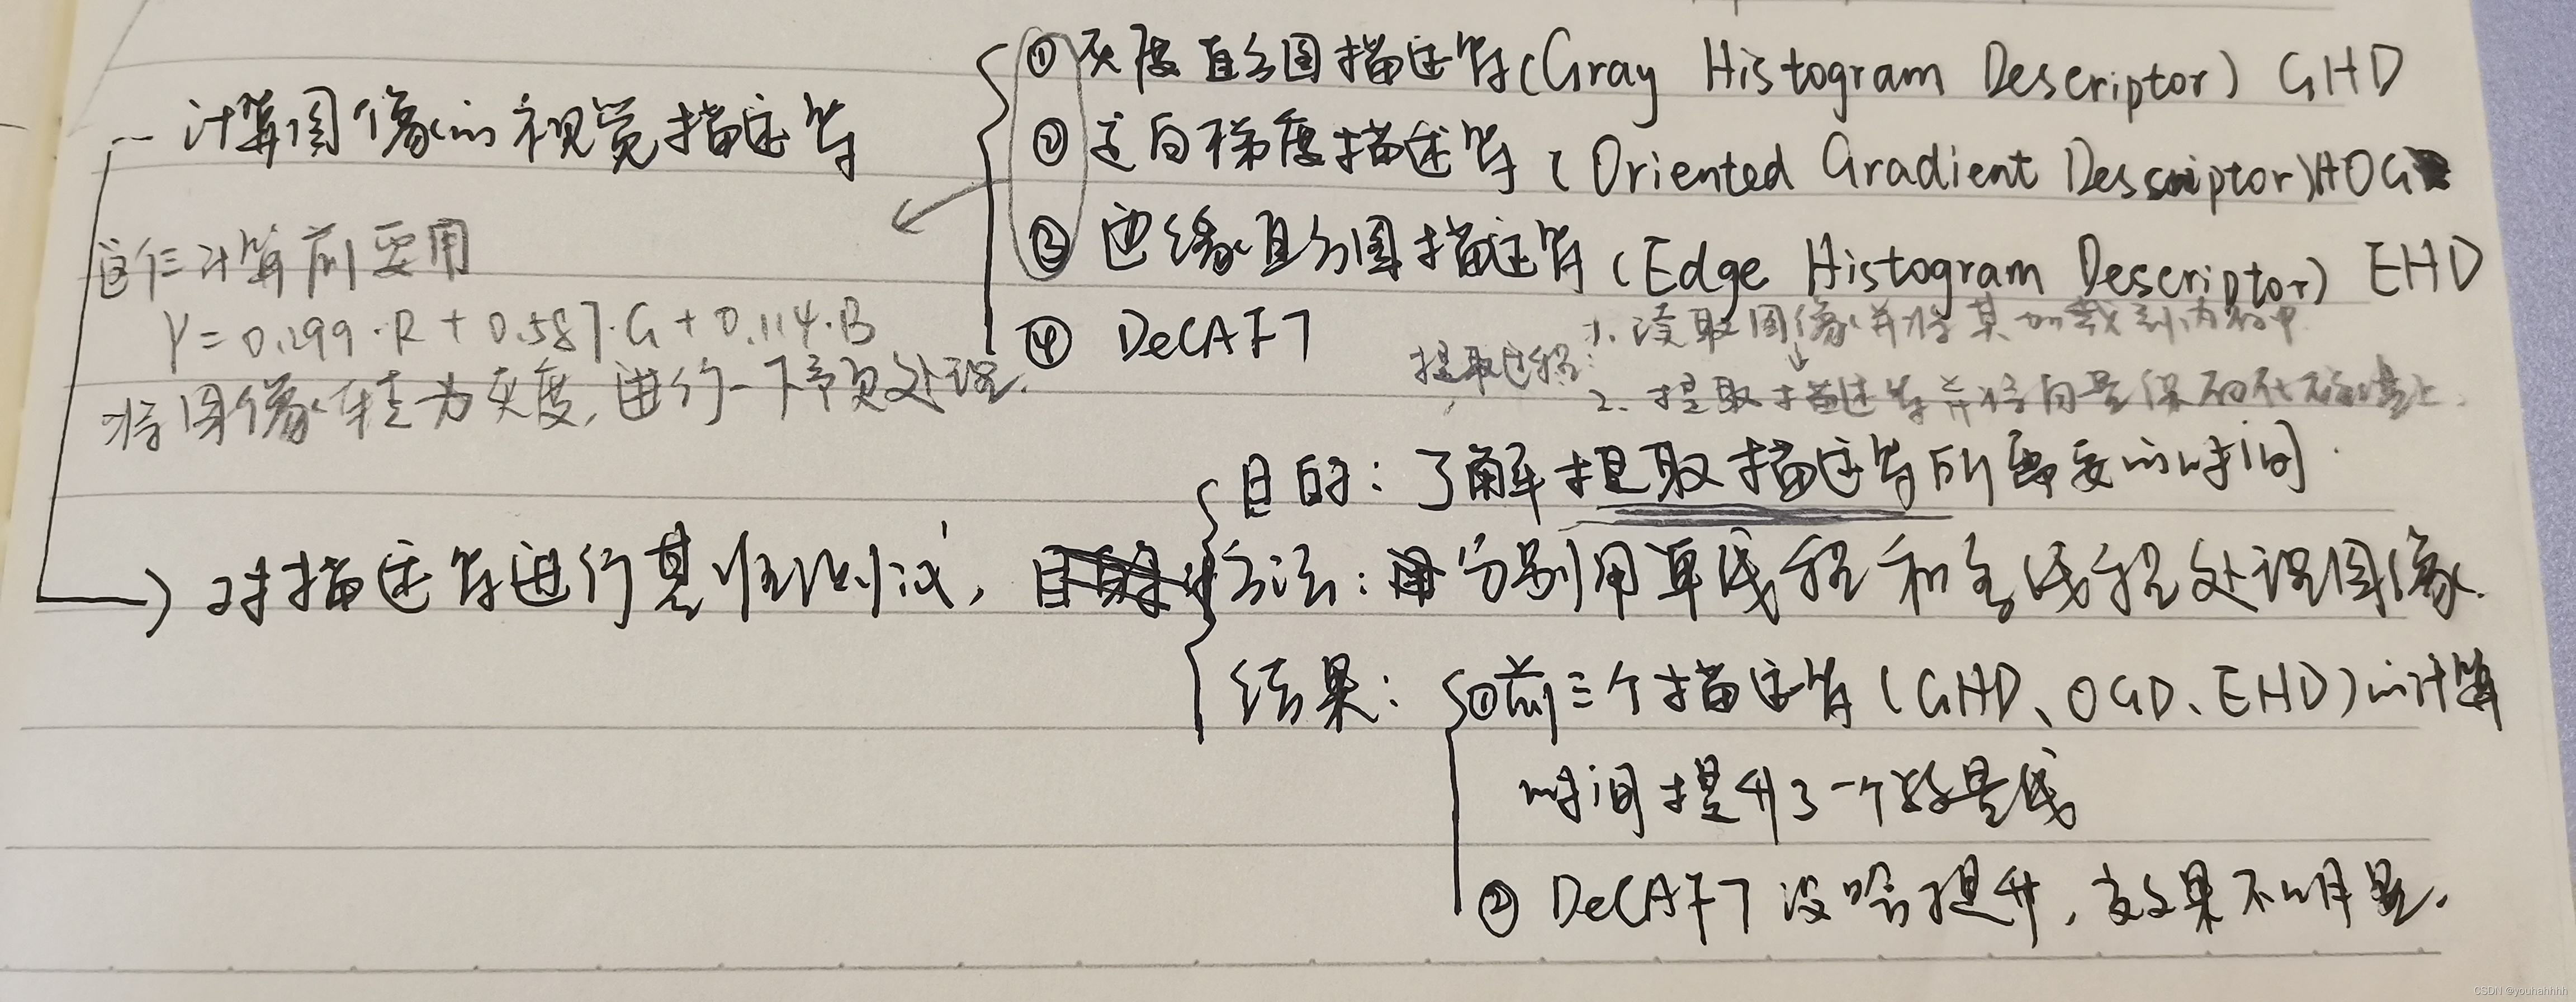 计算图像的视觉描述符
① 灰度直方图描述符(Gray Histogram Descriptor) GHD
② 定向梯度描述符(Oriented Gradient Descriptor)HOG
③ 边缘直方图描述符(Edge Histogram Descriptor) EHD
④ DeCAF7
这仨计算前要用
Y=0.299·R+0.587·G+0.114·B
将图像转为灰度,进行一下预处理.
提取过程:
1. 读取图像并将其加载到内存中
↓
2. 提取描述符并将向量保存在磁盘上.
→ 对描述符进行基准测试,
目的: 了解提取描述符所需要的时间.
方法: 分别用单线程和多线程处理图像.
结果: ①前三个描述符(GHD、OGD、EHD)的计算
时间提升了一个数量级
② DeCAF7 没啥提升, 效果不明显.
CSDN @youhahhhh